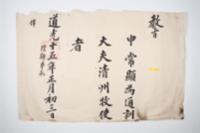 敎旨
申常顯爲通訓
大夫淸州牧使
者
道光十五年正月初三日